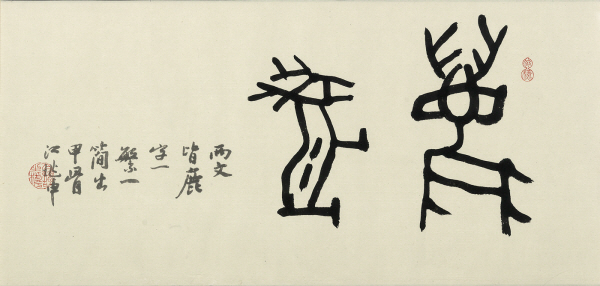 鹿
鹿
兩文
皆鹿
字一
繁一
簡出
甲骨
江兆申